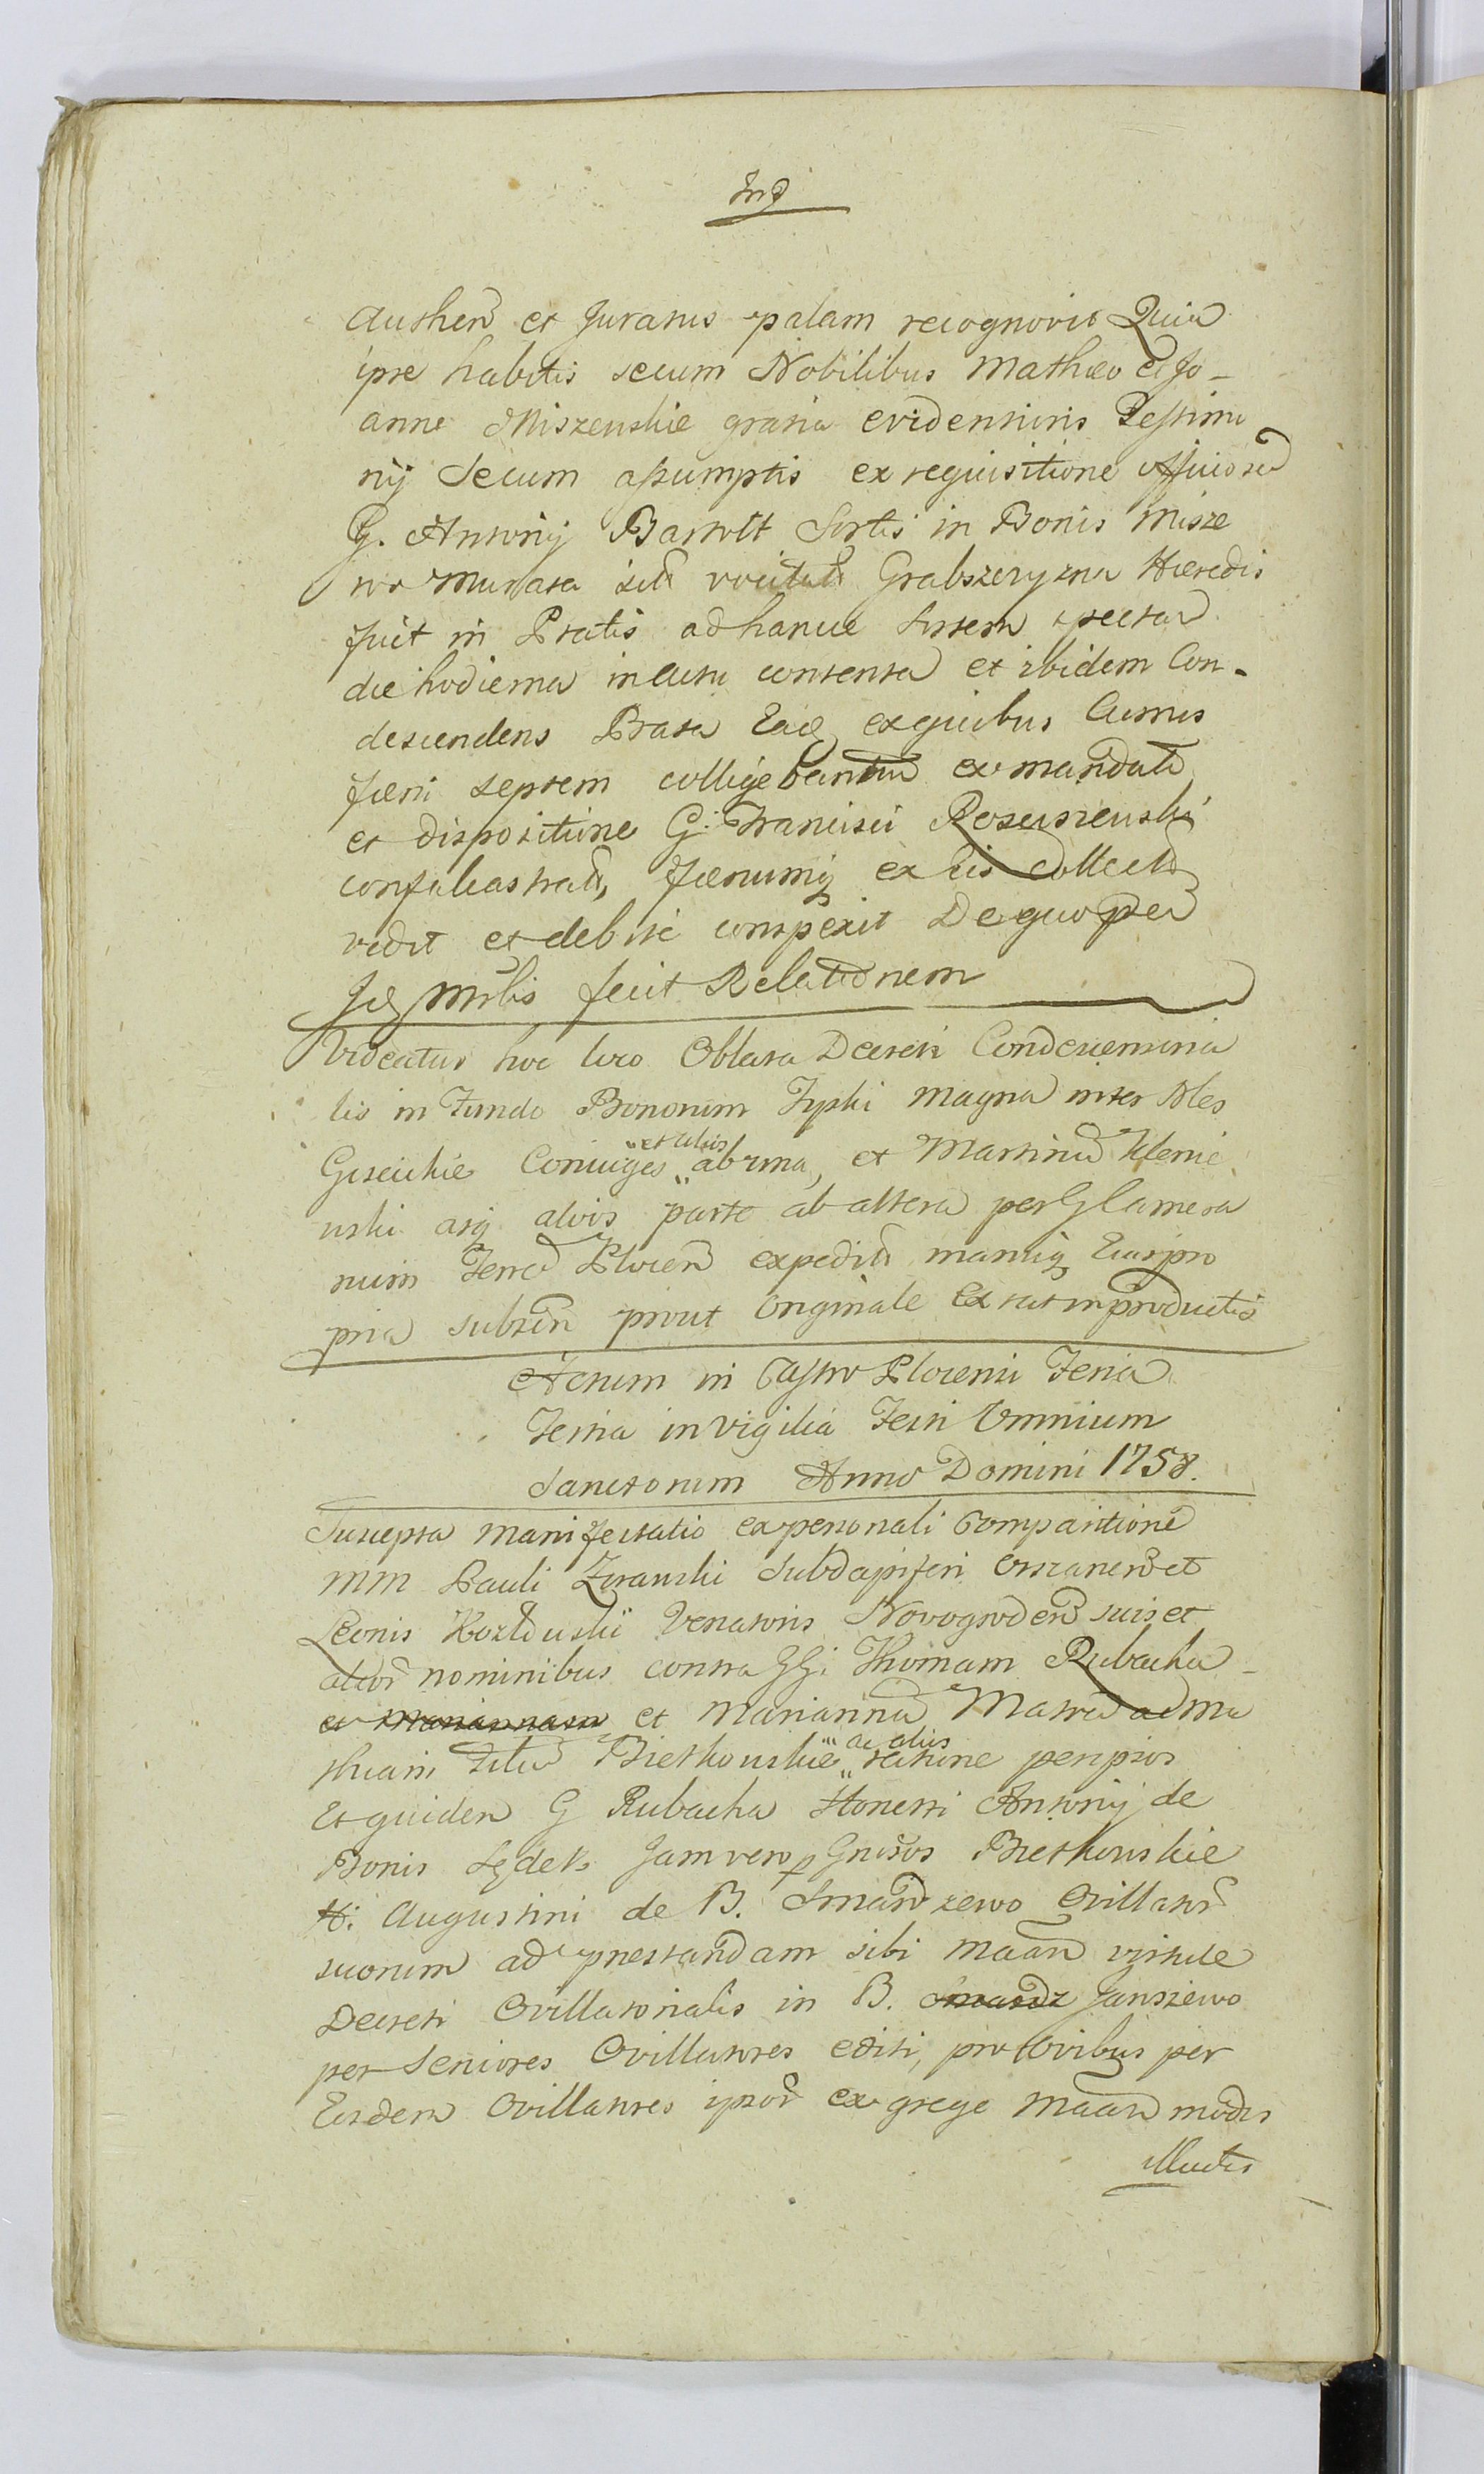 Ind
Authen et Juratus palam recognovit Quia
ipse habitis secum Nobilibus Mathæo et Jo-
anne Miszenskie gratia evidentioris Testimo
nij Secum assumptis ex requisitione Officiosa
G. Antonij Bartolt Sortis in Bonis Misze
wo Murata seu vocitat Grabszczyzna Hæredis
fuit in Pratis ad hancce Sortem spectan
die hodierna in actu contenta et ibidem Con-
descendens Prata Eadq ex quibus Cumus
fæni septem colligebantur ex mandato
et dispositione G: Francisci Rosciszewski
confalcastrata, fænumq ex eis collectu
vidit et debite conspexit De quo per
Jdq mrlis fecit Relationem
Videatur hoc loco Oblata Decreti Condescensoria
lis in Fundo Bonorum Zyski Magna inter Nles
Giscickie Coniuges "et aliis" ab una, et Martinu Klenie
wski atq alios parte ab altera per G Camera
rium Terræ Plocen expediti manuq Eius pro
pria subscri prout Originale Extat in productis
Actum in Castro Plocensi Feria
Tertia in Vigilia Festi Omnium
Sanctorum Anno Domini 1758.
Suscepta Manifestatio ex personali Comparitione
MM Pauli Zoranski Subdapiferi Orszanen et
Leonis Kozłowskij Venatoris Novogroden suis et
alior nominibus contra GG: Thomam Rubacha
et Mariannam et Mariannu Matre ac Ma
thiam Filiu Bietkouskie "ac alios" ratione per ipsos
Et quidem G Rubacha Honesti Antonij de
Bonis Sędek Jam vero p Gnosos Bietkouskie
H: Augustini de B. Smardzewo Ovillator
suorum ad prestandam sibi Maan virtute
Decreti Ovillatorialis in B. Smardz Janszewo
per Seniores Ovillatores editi, pro Ovibus per
Eosdem Ovillatores ipsor ex grege Maan modis
illicitis